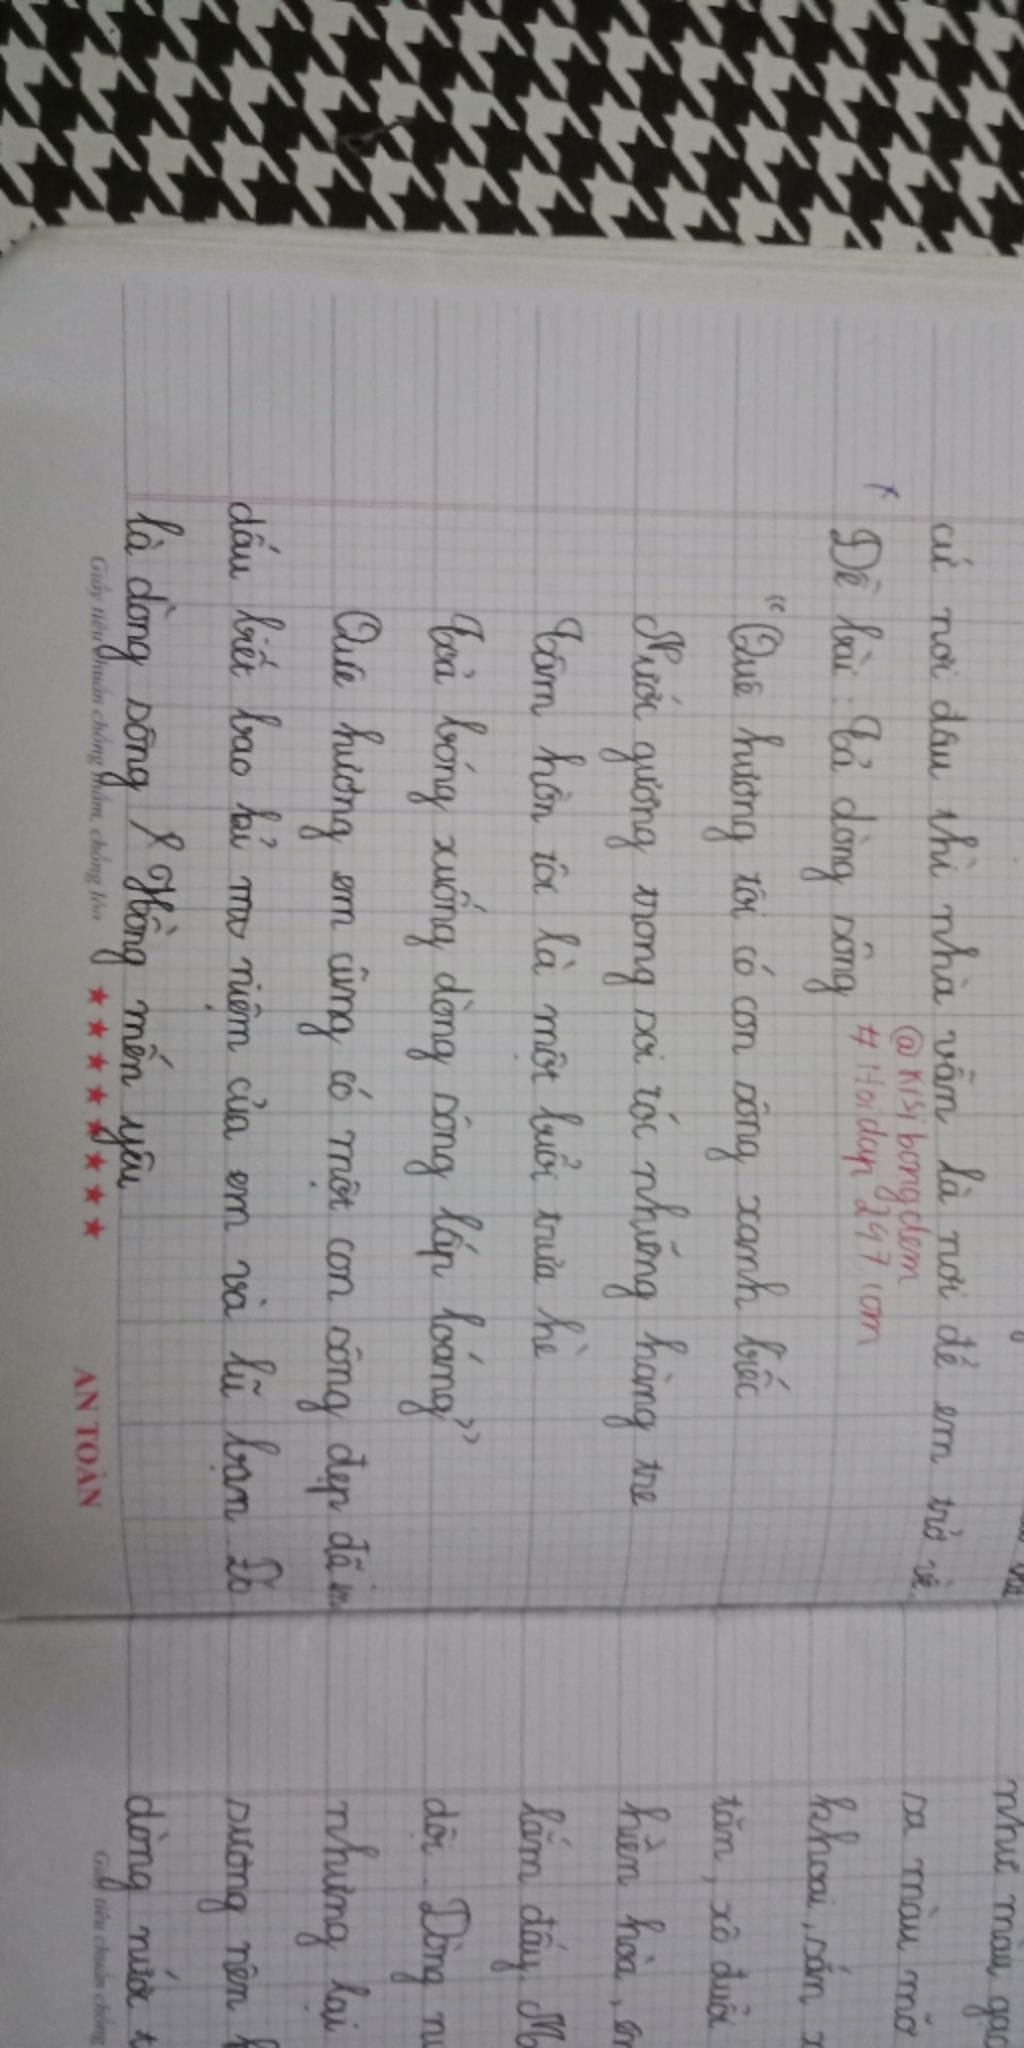 cứ nơi đâu thì nhà vẫn là nơi để em trở về.
@kisibongdem
Đề bài: Tả dòng sông
#Hoidap247.com
"Quê hương tôi có con sông xanh biếc
Nước gương trong soi tóc những hàng tre
Tâm hồn tôi là một buổi trưa hè
Toả bóng xuống dòng sông lấp loáng"
Quê hương em cũng có một con sông đẹp đã in
dấu biết bao kỉ niệm của em và lũ bạn. Đó
là dòng sông Hồng mến yêu
Giấy tiêu chuẩn chống thấm, chống lóa ★★★★★★★★ AN TOÀN
như màu gạo
sa màu mỡ
khoai, sắn
tăn, xô đuổi
hiền hoà,
lắm đấy.
dội. Dòng
nhưng lại
sương nên
dòng nước
Giấy tiêu chuẩn chống